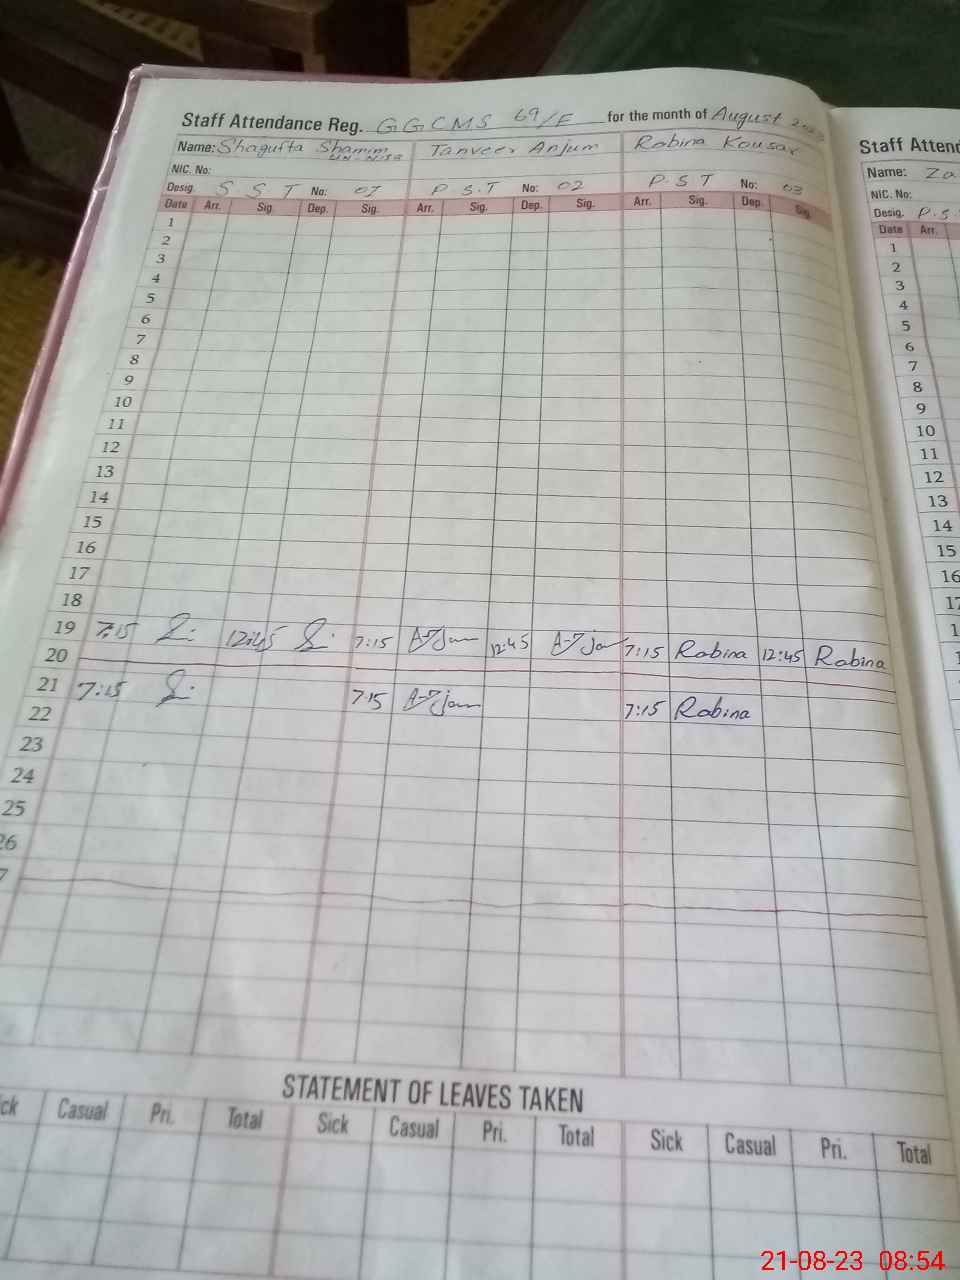 Staff Attendance Reg. GGCMS 69/F for the month of August
Name: Shagufta Shamim UN-NISA Tanveer Anjum Robina Kousar
NIC. No:
Desig. S S T No: 01 P S.T No: 02 P.S.T No: 03
Date Arr. Sig. Dep. Sig. Arr. Sig. Dep. Sig. Arr. Sig. Dep. Sig.
1
2
3
4
5
6
7
8
9
10
11
12
13
14
15
16
17
18
19 7:15 12:45 7:15 12:45 7:15 Robina 12:45 Robina
20
21 7:15 7:15 7:15 Robina
22
23
24
25
26
7
STATEMENT OF LEAVES TAKEN
ck Casual Pri. Total Sick Casual Pri. Total Sick Casual Pri. Total
Staff Attend
Name: Za
NIC. No:
Desig. P.S.
Date Arr.
1
2
3
4
5
6
7
8
9
10
11
12
13
14
15
16
17
21-08-23 08:54